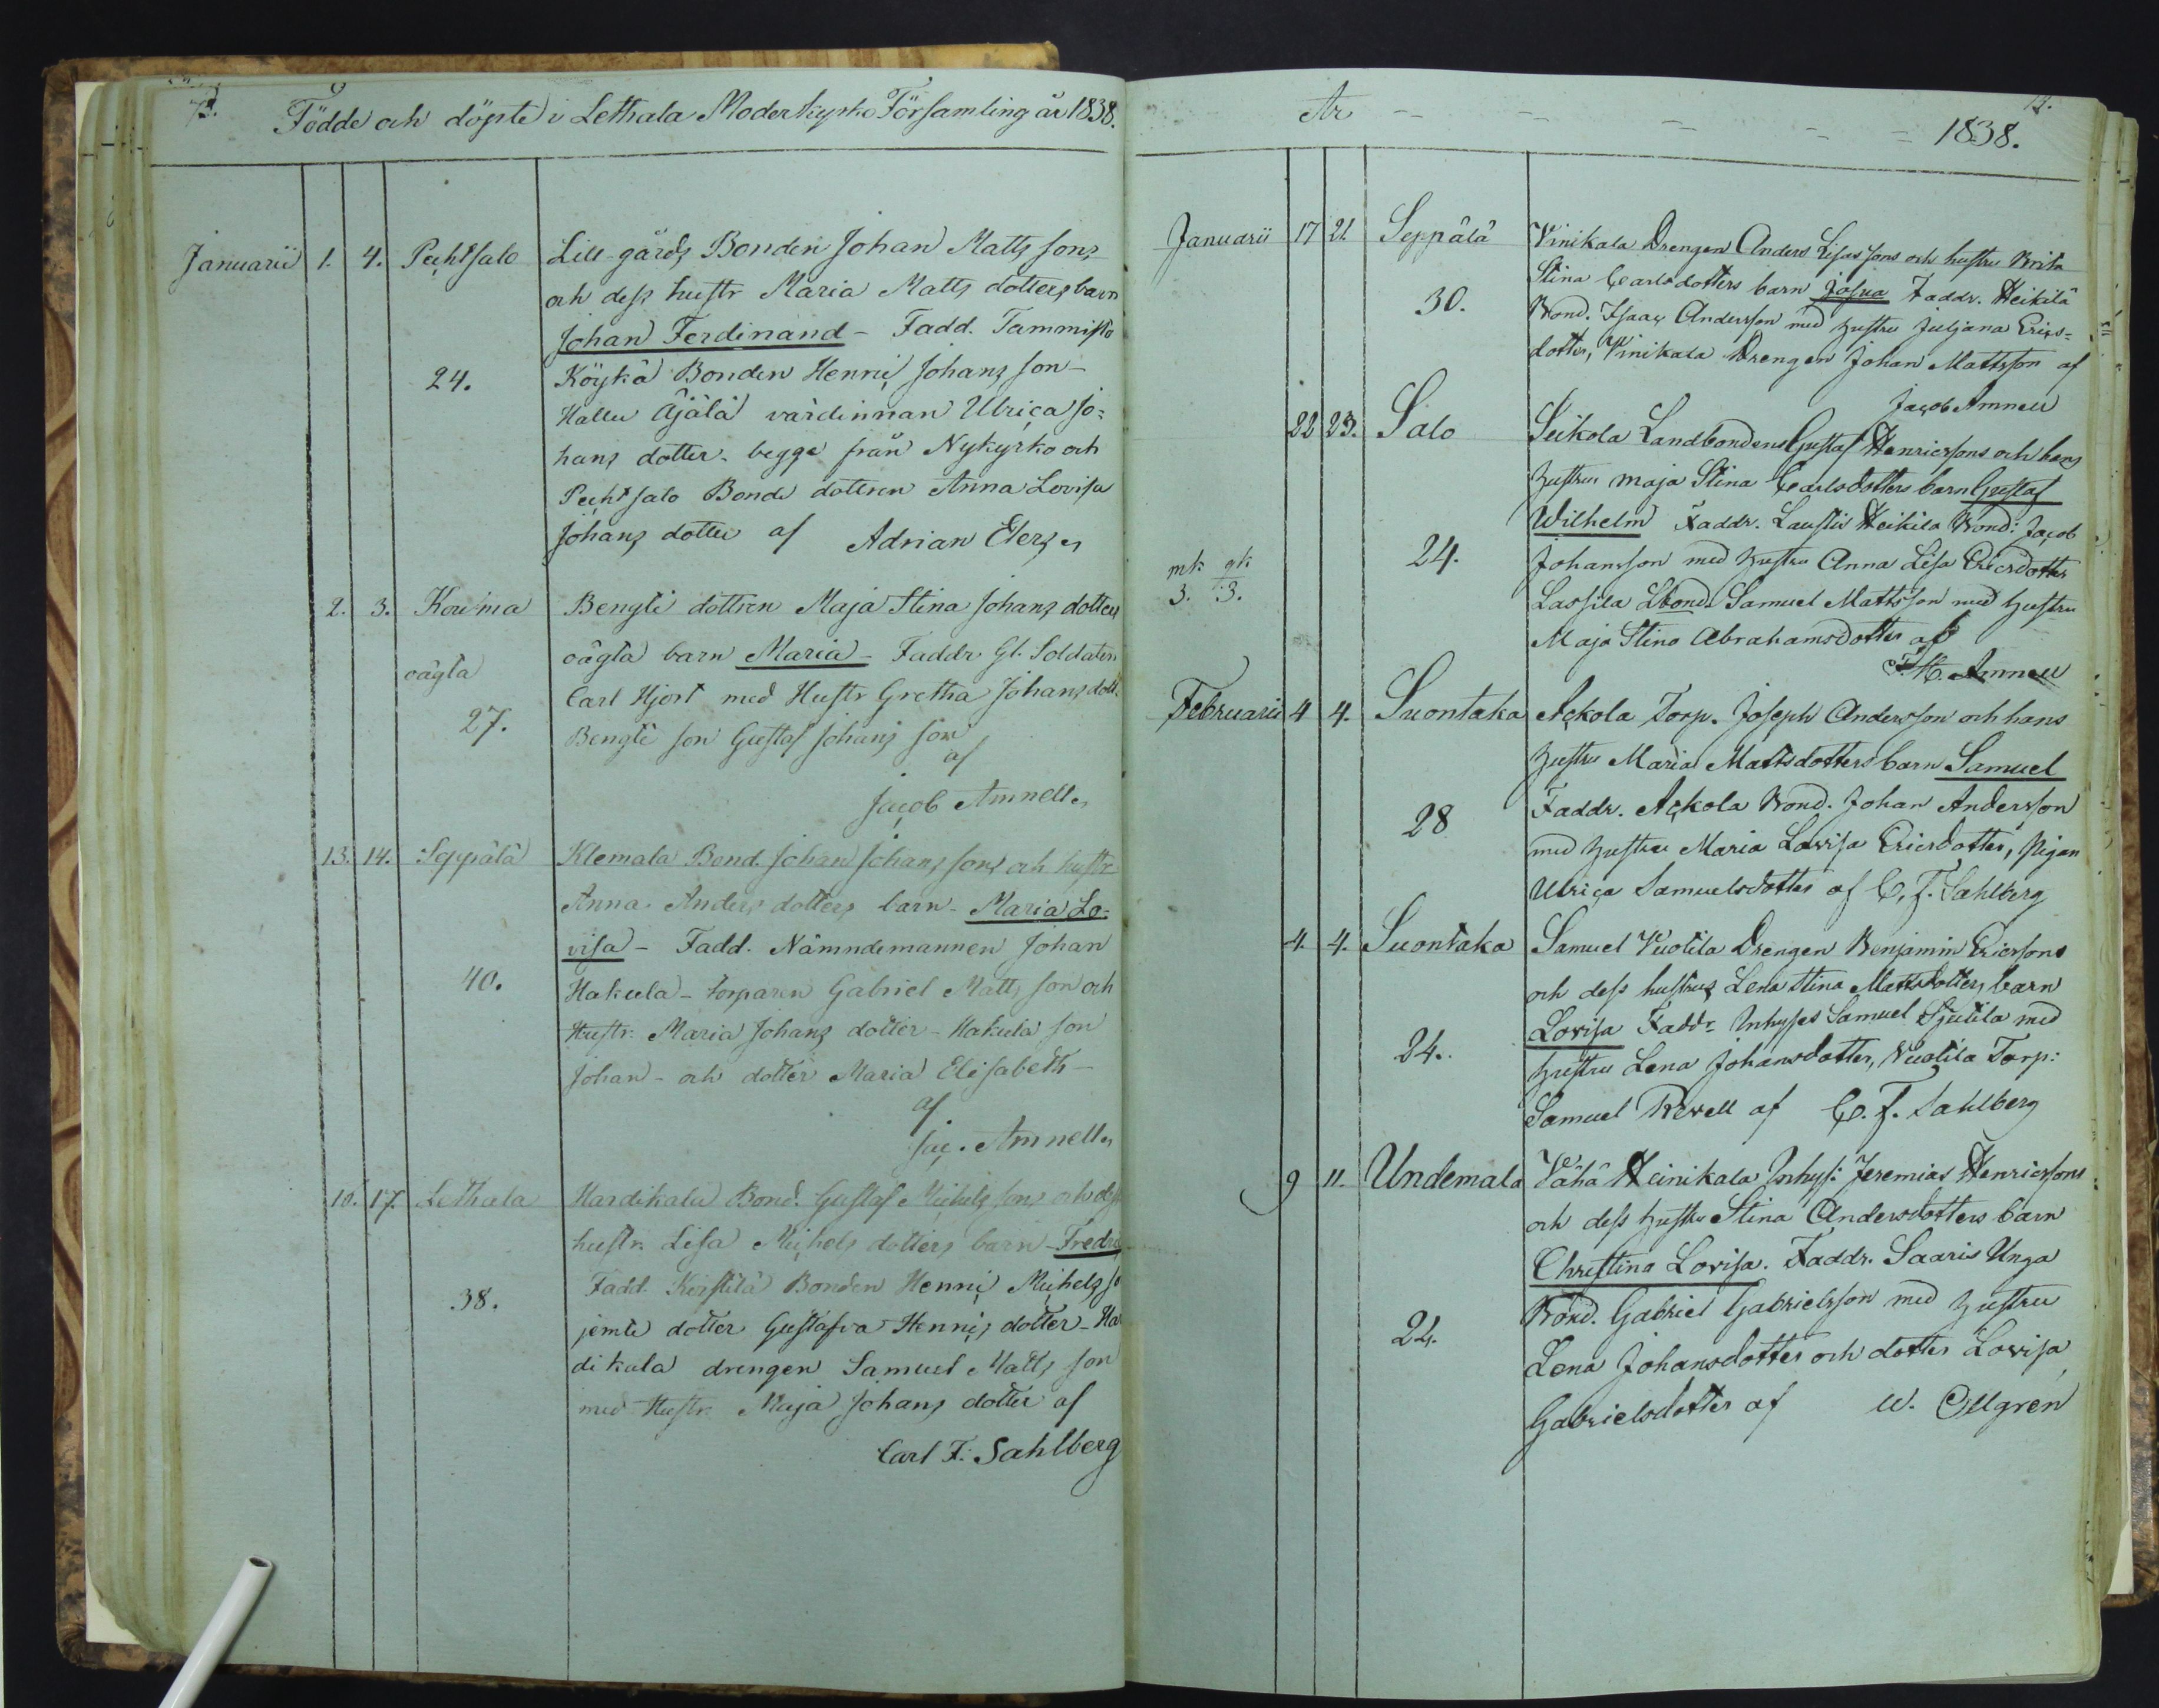 73.
Födde och döpte i Lethala Moderkyrko Församling år 1838.
Januarii 1. 4. Pechtsalo Lill-gårds Bonden Johan Matts sons
och dess hustr Maria Matts dotters barn
Johan Ferdinand - Fadd. Tammisto
24. Köykä Bonden Henric Johans son -
Hallu Äjälä värdinnan Ulrica Jo=
hans dotter. begge från Nykyrko och
Pechtsalo Bonde dottren Anna Lovisa
Johans dotter af Adrian Elers
2. 3. Kouma Bengti dottren Maja Stina Johans dotters
oägta oägta barn Maria - Faddr Gl. Soldaten
Carl Hjort med Hustr Gretha Johans dott.
27. Bengti son Gustaf Johans son
af
Jacob Amnell
13. 14. Seppälä Klemala Bond. Johan Johans sons och hustr
Anna Anders dotters barn - Maria Lo=
visa - Fadd. Nämndemannen Johan
40. Hakula - torparen Gabriel Matts son och
Hustr: Maria Johans dotter - Hakula son
Johan - och dotter Maria Elisabeth -
af
Jac. Amnell
10. 17. Lethala Hardikala Bond. Gustaf Michels sons och dess
hustr. Lisa Michels dotters barn - Fredric
Fadd. Kerstilä Bonden Henric Michels so
38. jemte dotter Gustafva Henrics dotter - Har
dikala drengen Samuel Matts son
med Hustr. Maja Johans dotter af
Carl F. Sahlberg
År - - - - - 1838.
Januarii 17 21. Seppälä Vinikala Drengen Anders Lisassons och hustru Brita
Stina Carlsdotters barn Josua Faddr. Heikilä
30. Bond. Isaac Andersson med hustru Juljana Erics=
dotter, Vinikala Drengen Johan Mattsson af
Jacob Amnell
22 23. Salo Seikola Landbondens Gustaf Henricssons och hans
hustrus Maja Stina Carlsdotters barn Gustaf
Wilhelm Faddr. Laustis Heikila Bond: Jacob
mk gk 24. Johansson med hustru Anna Lisa Ericsdotter
3. 3. Lassila Lbond. Samuel Mattsson med hustru
Maja Stina Abrahamsdotter af
Amnell
Februarii 4 4. Suontaka Ackola Torp. Joseph Andersson och hans
hustru Maria Mattsdotters barn Samuel
28 Faddr. Ackola Bond. Johan Andersson
med hustru Maria Lovisa Ericsdotter, Pigan
Ulrica Samuelsdotter af C. F. Sahlberg
4. 4. Suontaka Samuel Vuotila Drengen Benjamin Ericssons
och dess hustrus Lena Stina Mattsdotters barn
Lovisa Faddr Inhyses Samuel Sjutila med
24. hustru Lena Johansdotter, Vuotila Torp:
Samuel af C. F. Sahlberg
9 11. Undemala Vähä Heinikala Inhys: Jeremias Henricssons
och dess hustr Stina Andersdotters barn
Christina Lovisa. Faddr. Saaris Unga
24. Bond. Gabriel Gabrielsson med hustru
Lena Johansdotter och dotter Lovisa
Gabrielsdotter af W. Ollgren